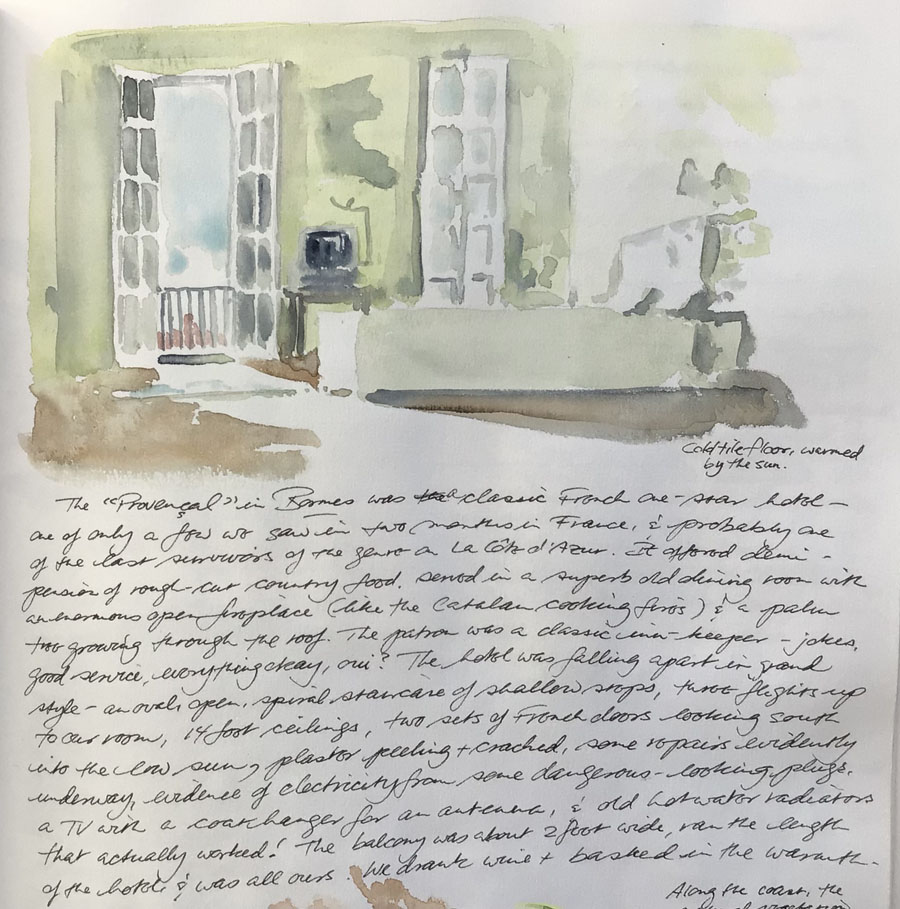 Cold tile floor, warmed
by the sun.
The "Provençal" in Bormes was a classic French one-star hotel –
one of only a few we saw in two months in France, & probably one
of the last survivors of the genre on La Côte d'Azur. It offered demi-
pension of rough-cut country food, served in a superb old dining room with
an enormous open fireplace (like the Catalan cooking fires) & a palm
tree growing through the roof. The patron was a classic inn-keeper – jokes,
good service, everything okay, oui? The hotel was falling apart in grand
style – an oval, open, spiral staircase of shallow steps, three flights up
to our room, 14 foot ceilings, two sets of French doors looking south
into the low sun, plaster peeling + cracked, some repairs evidently
underway, evidence of electricity from some dangerous-looking plugs,
a TV with a coathanger for an antenna, & old hot water radiators
that actually worked! The balcony was about 2 foot wide, ran the length
of the hotel & was all ours. We drank wine + basked in the warmth.
Along the coast, the